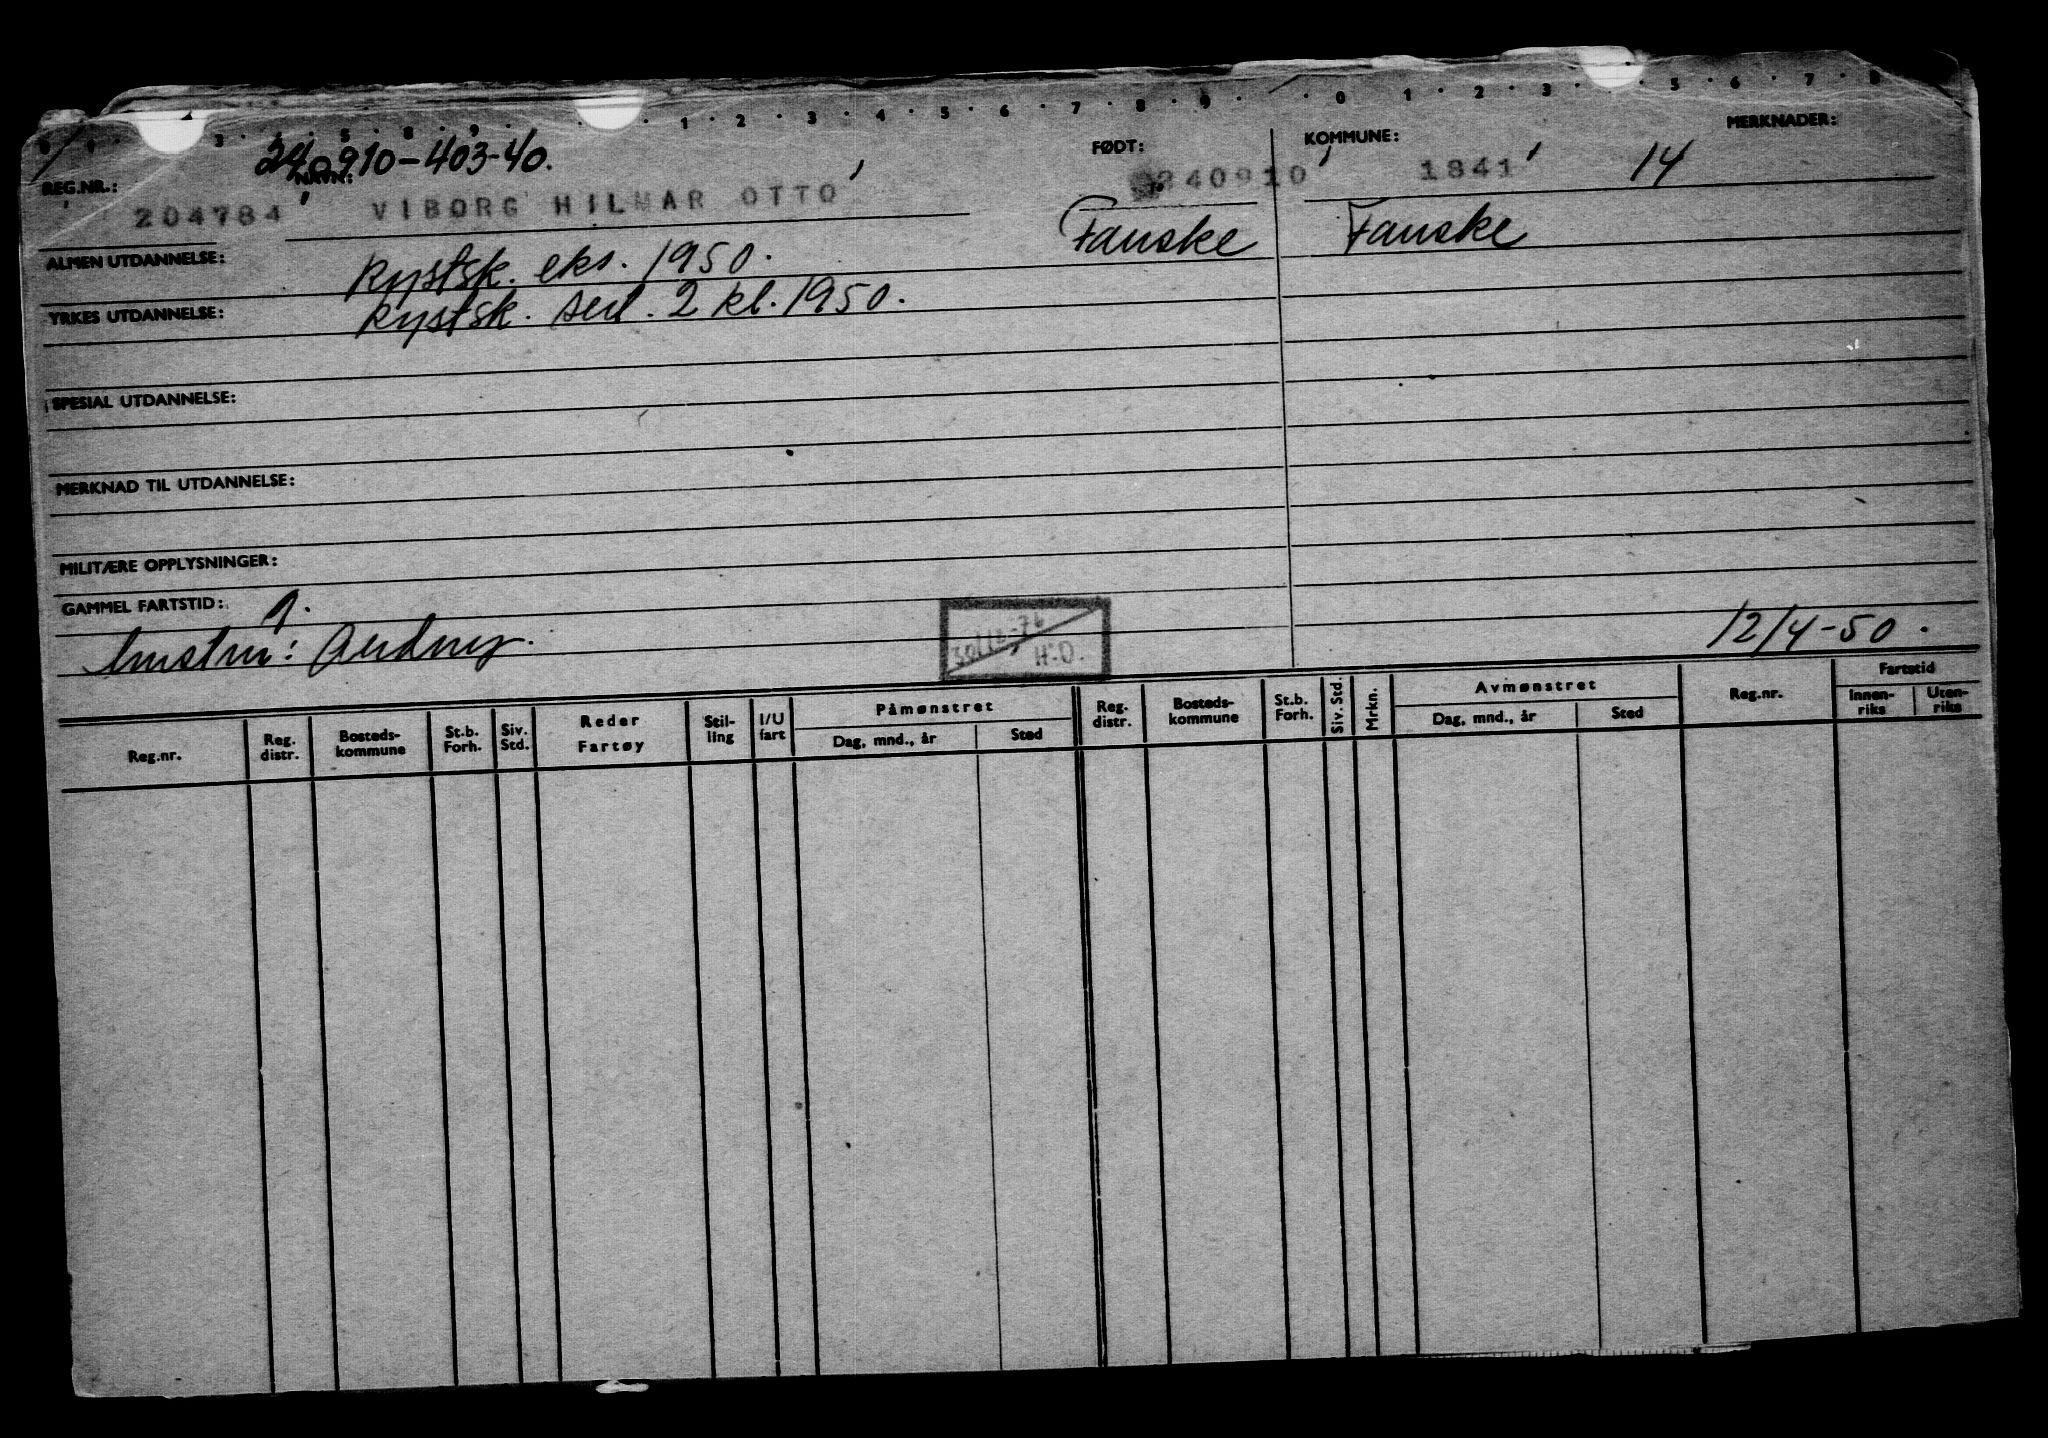 240910-403-40.
REG.NR.: NAVN: FØDT: KOMMUNE: MERKNADER:
204784 VIBORG HILMAR OTTO 240910 1841 14
ALMEN UTDANNELSE: Kystsk. eks. 1950. Fauske Fauske
YRKES UTDANNELSE: Kystsk. sert. 2 kl. 1950.
SPESIAL UTDANNELSE:
MERKNAD TIL UTDANNELSE:
MILITÆRE OPPLYSNINGER:
GAMMEL FARTSTID:
12/4-50.
H.O.
Reg.nr. Reg. distr. Bosteds-kommune St.b. Forh. Siv. Std. Reder Fartøy Stil-ling I/U fart Påmønstret Dag, mnd., år Sted Reg. distr. Bosteds-kommune St.b. Forh. Siv. Std. Mrkn. Avmønstret Dag, mnd., år Sted Reg.nr. Fartstid Innen-riks Uten-riks